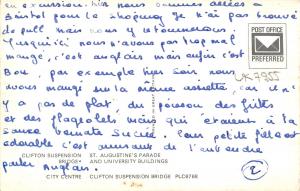 en excursion. hier nous sommes allées à
Bristol pour le shopping je n'ai pas trouvé
de pull mais nous y retournerons.
Jusqu'ici nous n'avons pas trop mal
mangé, c'est anglais mais enfin c'est
Bon, par exemple hier soir nous
avons mangé sur la même assiette, car il n'
y a pas de plat, du poisson des frites
et des flageolets mais qui étaient à la
sauce tomate sucrée. Leur petite fille est
adorable c'est amusant de l'entendre
parler Anglais.
POST OFFICE
PREFERRED
UK7955
CLIFTON SUSPENSION BRIDGE
ST. AUGUSTINE'S PARADE AND UNIVERSITY BUILDINGS
CITY CENTRE CLIFTON SUSPENSION BRIDGE PLC8788
2